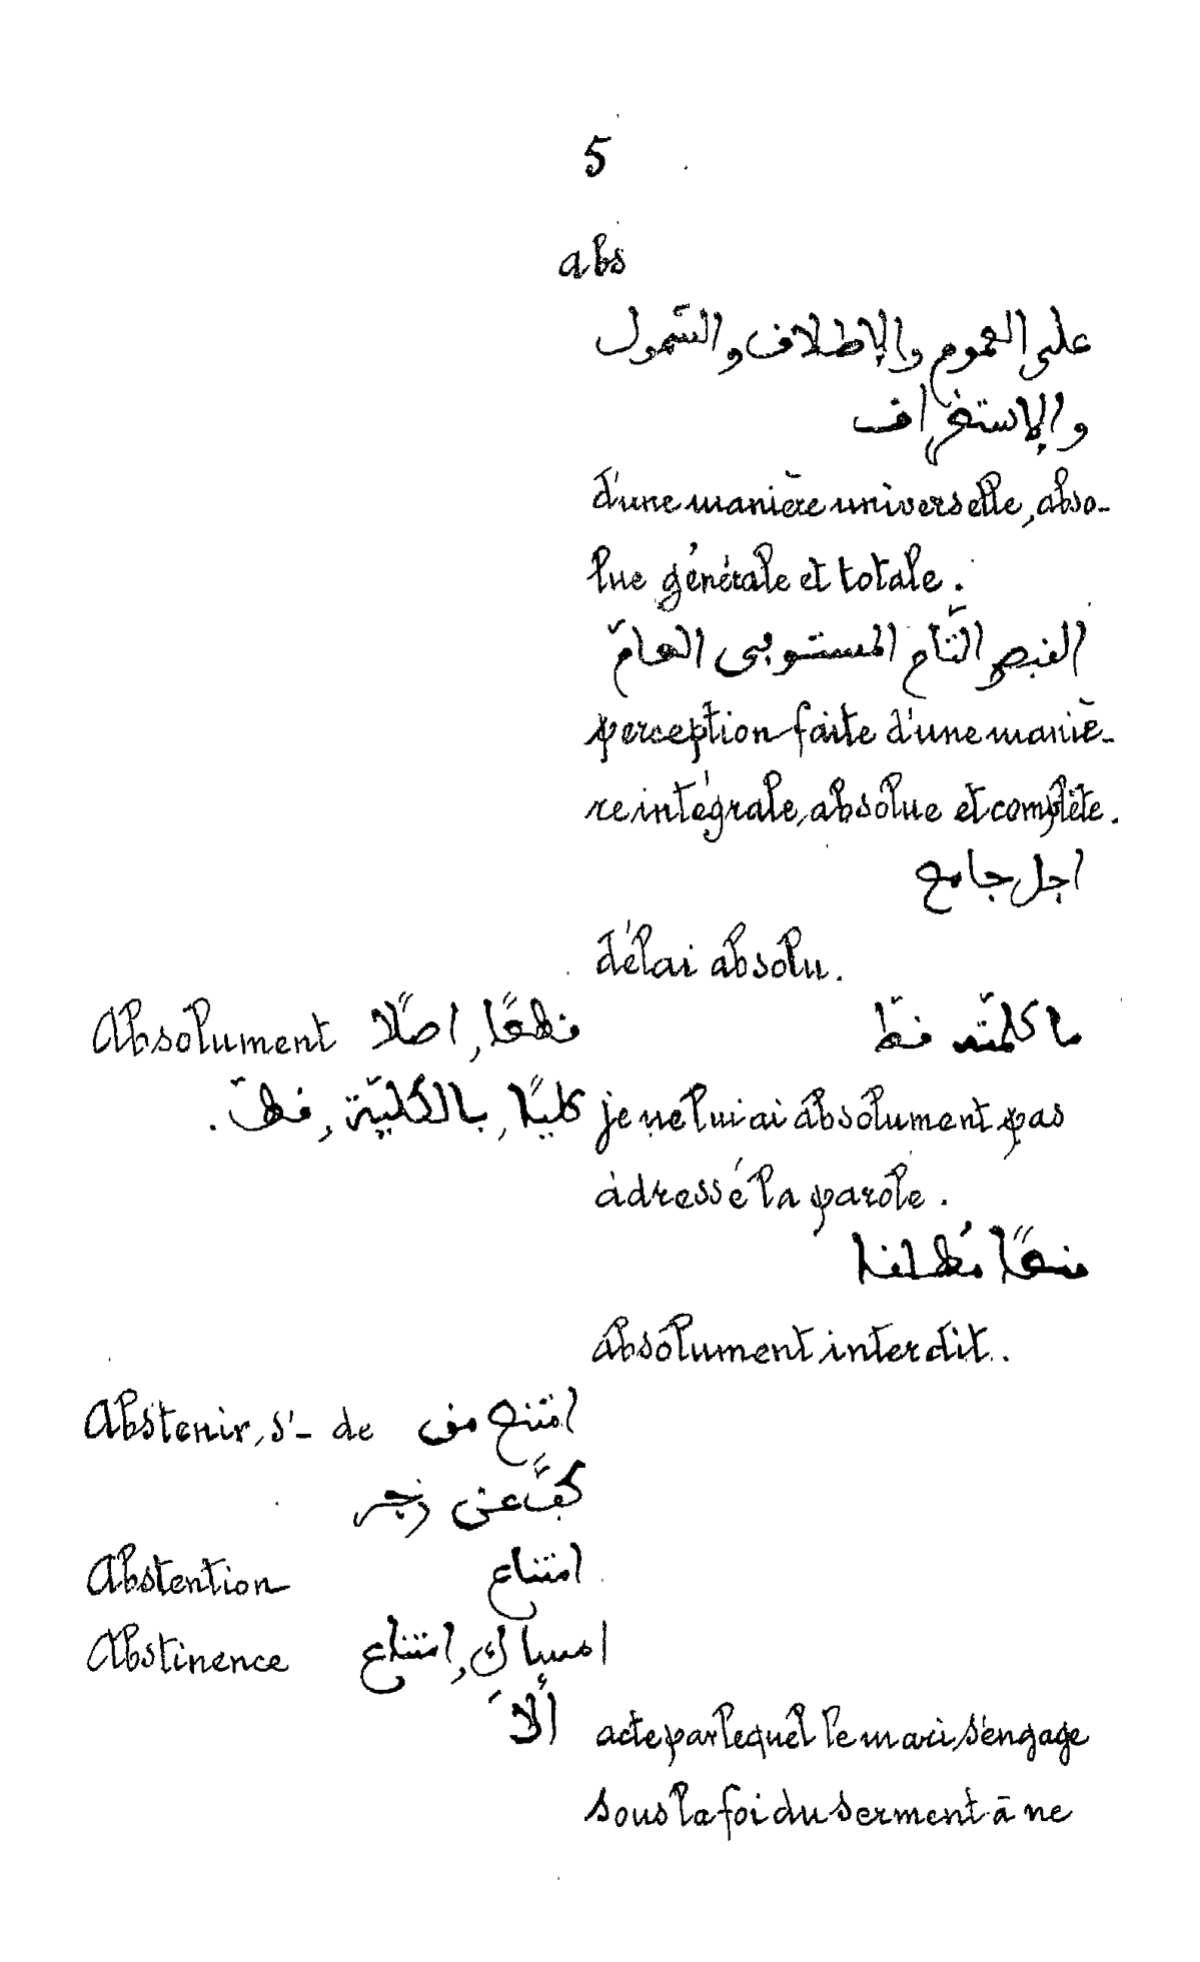 5
abs
على العموم والإطلاق والشمول
والإستغراق
d'une manière universelle, abso-
lue générale et totale.
القبض التّام المستوفى العامّ
perception faite d'une maniè-
re intégrale, absolue et complète.
اجل جامع
délai absolu.
Absolument قطعًا, اصلًا
ما كلمتّه قطّ
كليًّا, بالكليّة, قطّ.
je ne lui ai absolument pas
adressé la parole.
منعًا مُطلقا
absolument interdit.
Abstenir, s'- de امتنع من
كفّ عن زجر
Abstention امتناع
Abstinence امساك, امتناع
acte par lequel le mari s'engage
sous la foi du serment à ne